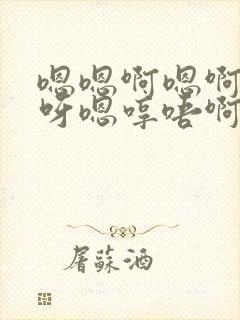 嗯嗯啊嗯啊
呀嗯哼唔啊
屠蘇酒